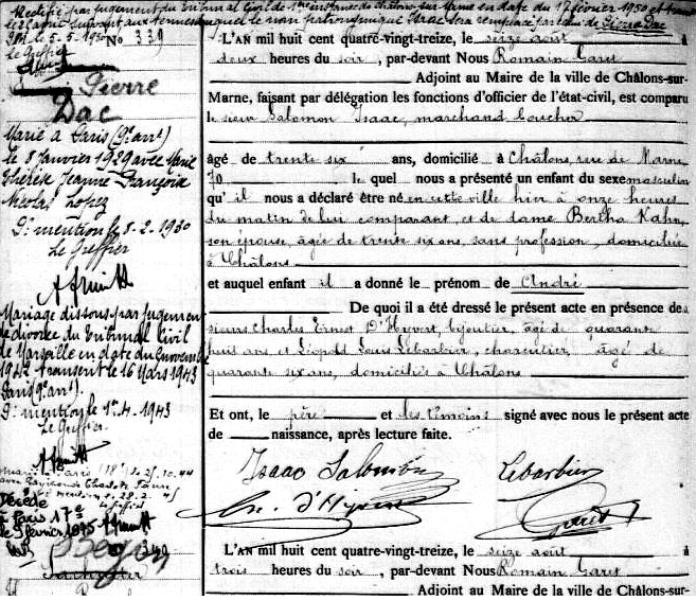 Rectifié par jugement du Tribunal Civil de 1ère instance de Châlons-sur-Marne en date du 17 février 1950
auquel le nom patronymique Isaac sera remplacé par celui de Pierre-Dac
5.5.1950
Le Greffier
No 339
Pierre
Dac
Marié à Paris (9e arrt)
le 8 Janvier 1929 avec Marie
Thérèse Jeanne Françoise
Nicolas Lopez
Dt mention le 8-2-1930
Le Greffier
Mariage dissous par jugement
de divorce du Tribunal Civil
de Marseille en date du 6 novembre
1942 transcrit le 16 Mars 1943
Paris (9e arrt)
Dt mention le 1er-4-1943
Le Greffier
Décédé
à Paris 17e
le 9 février 1975
340
L'AN mil huit cent quatre-vingt-treize, le seize août à
deux heures du soir, par-devant Nous Romain Garet
Adjoint au Maire de la ville de Châlons-sur-
Marne, faisant par délégation les fonctions d'officier de l'état-civil, est comparu
le sieur Salomon Isaac, marchand boucher
âgé de trente six ans, domicilié à Châlons, rue de Marne
70 lequel nous a présenté un enfant du sexe masculin
qu'il nous a déclaré être né en cette ville hier à onze heures
du matin de lui comparant, et de dame Bertha Kahn,
son épouse, âgée de trente six ans, sans profession, domiciliée
à Châlons
et auquel enfant il a donné le prénom de André
De quoi il a été dressé le présent acte en présence des
sieurs Charles Ernest D'Huvert, bijoutier, âgé de quarante
huit ans, et Léopold Louis Lebarbier, charcutier, âgé de
quarante six ans, domiciliés à Châlons
Et ont, le père et les témoins signé avec nous le présent acte
de naissance, après lecture faite.
Isaac Salomon Lebarbier
Garet
L'AN mil huit cent quatre-vingt-treize, le seize août à
trois heures du soir, par-devant Nous Romain Garet
Adjoint au Maire de la ville de Châlons-sur-